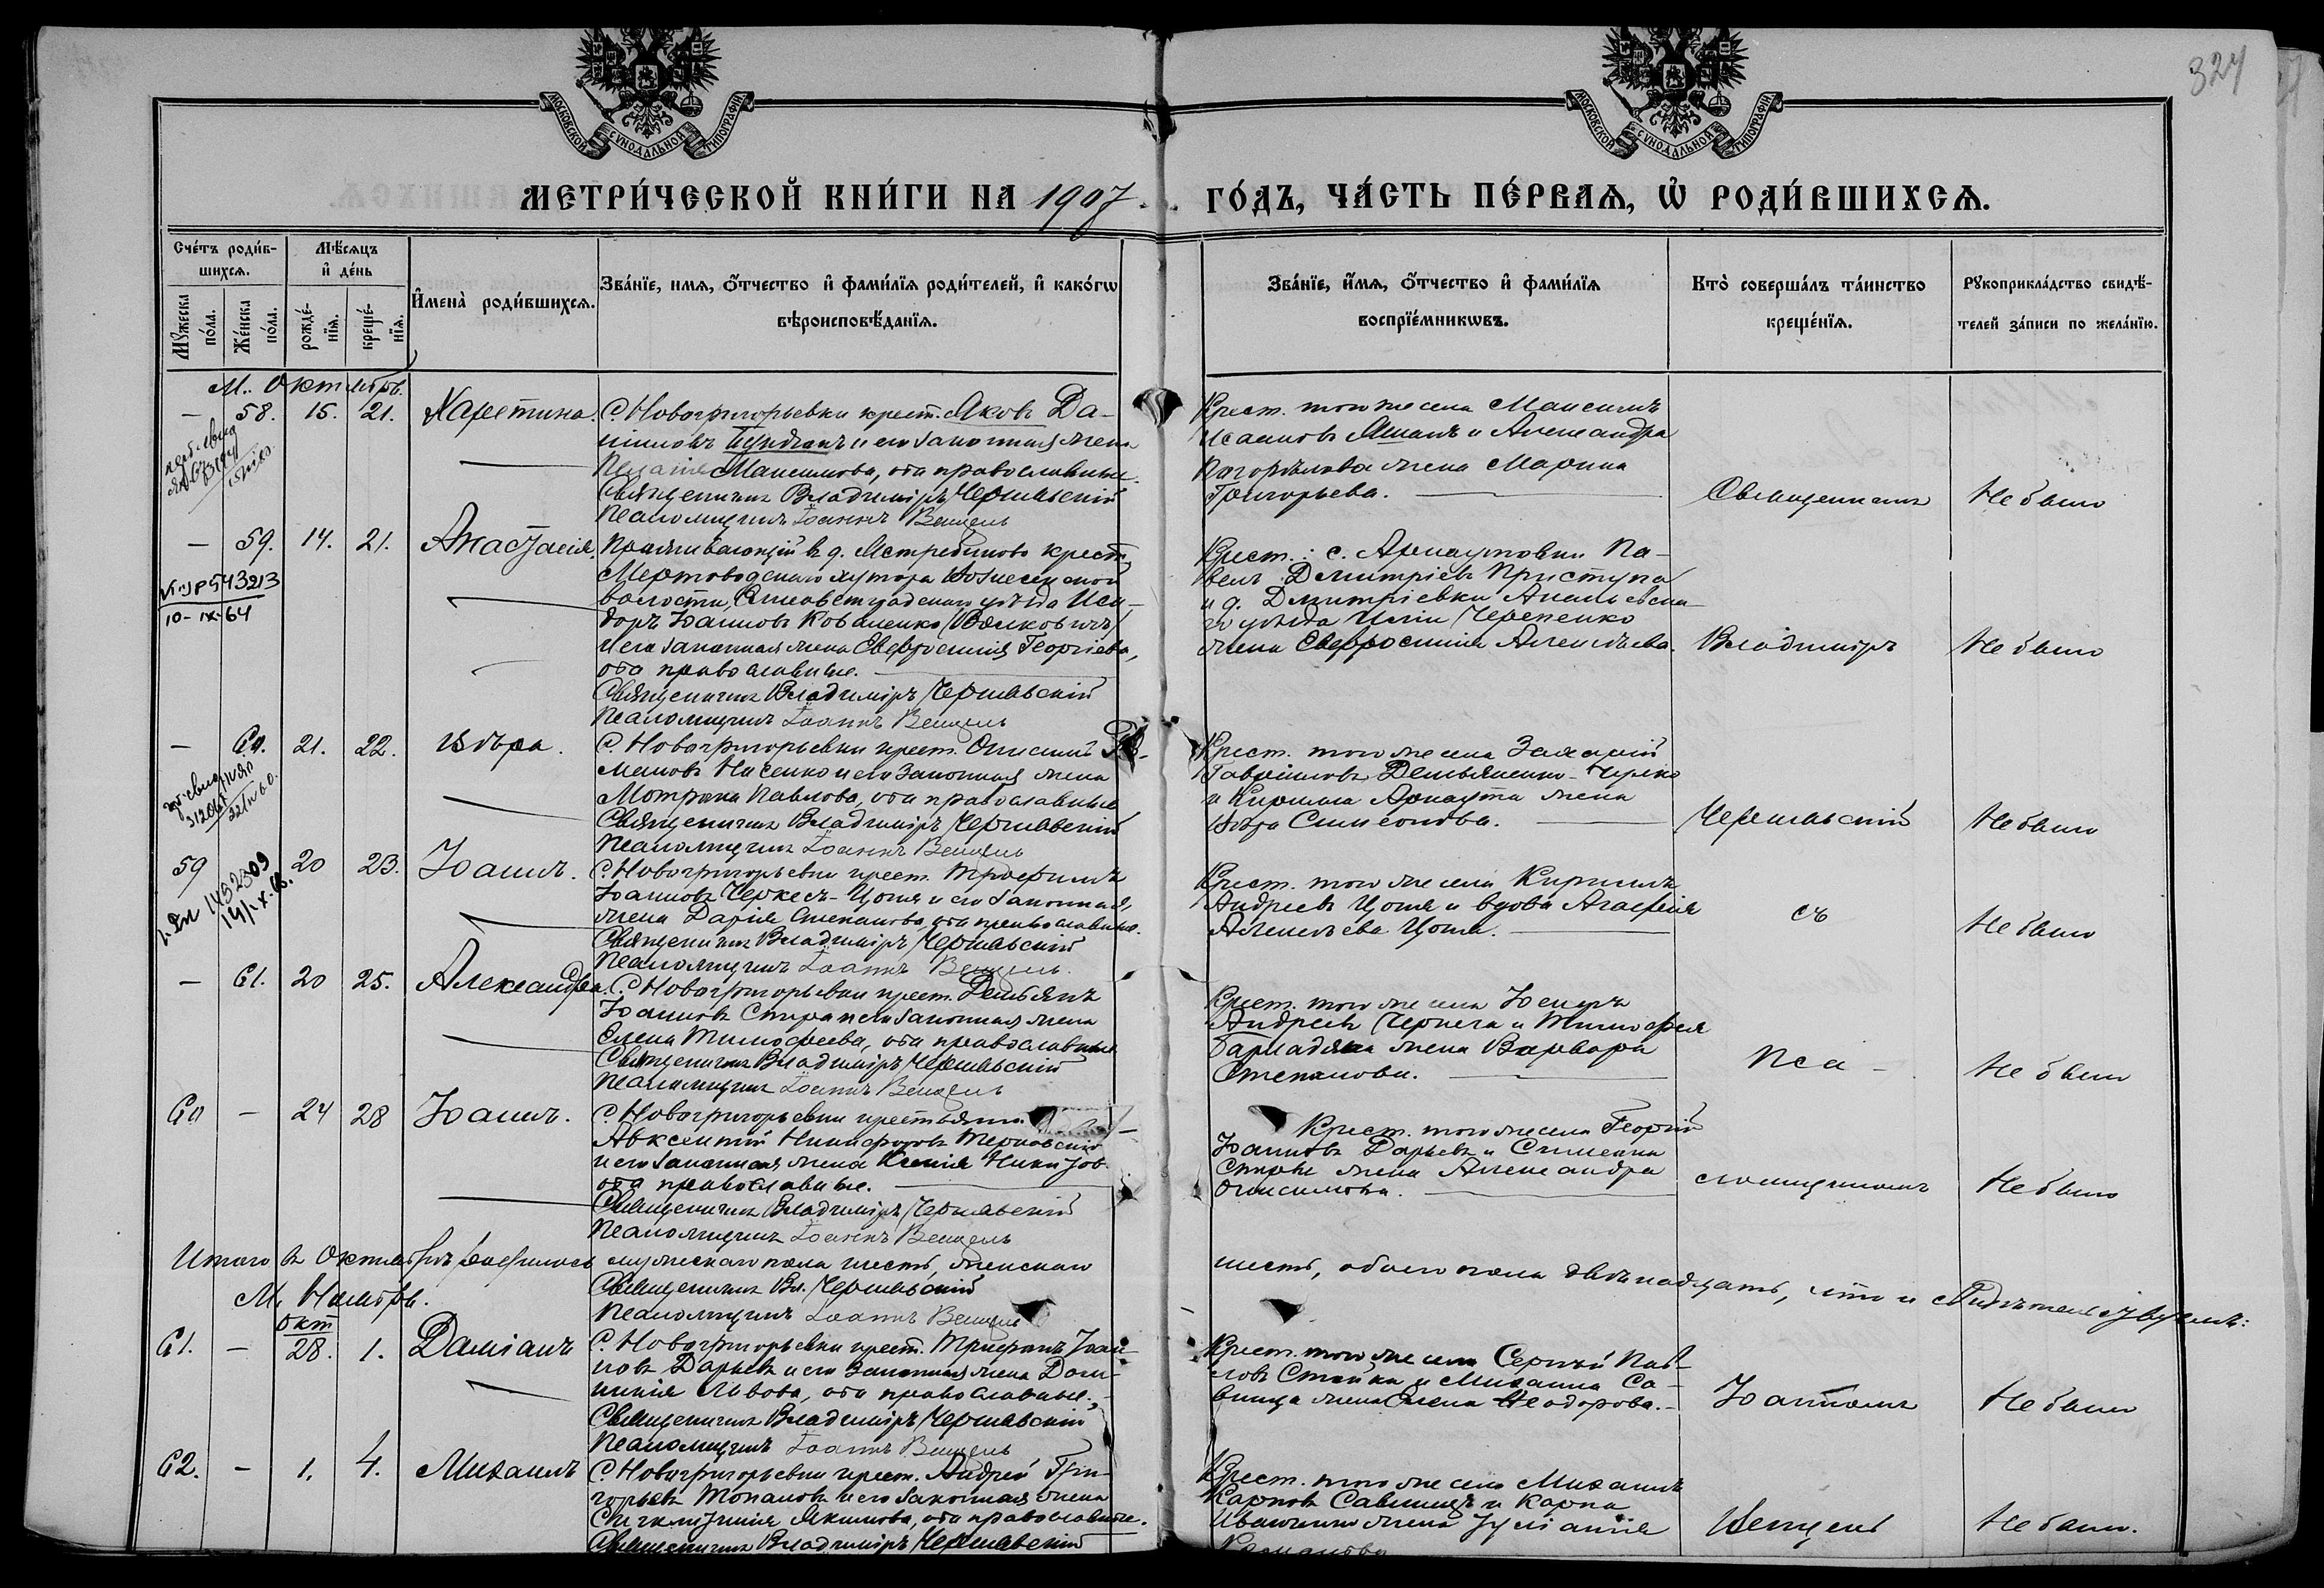 324
МОСКОВСКОЙ СѴНОДАЛЬНОЙ ТИПОГРАФІИ
МОСКОВСКОЙ СѴНОДАЛЬНОЙ ТИПОГРАФІИ
МЕТРИ́ЧЕСКОЙ КНИ́ГИ НА 1907
ГО́ДЪ, ЧА́СТЬ ПЕ́РВАѦ, Ѡ҆ РОДИ́ВШИХСѦ.
Сче́тъ роди́в-
шихсѧ.
Мꙋжеска
по́ла.
Же́нска
по́ла.
Мѣ́сѧцъ
и҆ де́нь
рожде́-
нїѧ.
креще́-
нїѧ.
И҆мена̀ роди́вшихсѧ.
Зва́нїе, имѧ, ѻ҆́тчество и҆ фами́лїѧ роди́телей, и҆ како́гѡ
вѣроисповѣ́данїѧ.
Зва́нїе, и҆́мѧ, ѻ҆́тчество и҆ фами́лїѧ
воспрїе́мникѡвъ.
Кто̀ соверша́лъ та́инство
креще́нїѧ.
Рꙋкоприкла́дство свидѣ́-
телей за́писи по жела́нїю.
М. Октябрь.
— 58. 15. 21. Харитина. С. Новогригорьевки крест. Яковъ Да-
ниловъ и его законная жена
Пелагія Максимова, оба православные.
Священникъ Владиміръ Чернявскій
Псаломщикъ Іоаннъ Венцель
Крест. того же села Максимъ
Исааковъ и Александра
Погорѣлова жена Марина
Григорьева.
Священникъ
Не было
— 59. 14. 21. Анастасія. Проживающій в д. Ястребиново крест.
Мертвоводскаго хутора Вознесенской
волости, Елисаветградскаго уѣзда Иси-
доръ Іоанновъ Коваленко (Волковичъ)
и его законная жена Евфросинія Георгіева,
оба православные.
Священникъ Владиміръ Чернявскій
Псаломщикъ Іоаннъ Венцель
10-IX-64
Крест.: с. Арнаутовки Па-
велъ Димитріевъ Приступа
и д. Дмитріевки Ананьевска-
го уѣзда Иліи Черненко
жена Евфросинія Алексѣева.
Владиміръ
Не было
— 60. 21. 22. Вѣра. С. Новогригорьевки крест. Онисимъ Ро-
мановъ Носенко и его законная жена
Мотрона Павлова, оба православные
Священникъ Владиміръ Чернявскій
Псаломщикъ Іоаннъ Венцель
Крест. того же села Захарій
Гавріиловъ Демьяненко-
и Кирилла Арнаута жена
Вѣра Симеонова.
Чернявскій
Не было
59 20 23. Іоаннъ. С. Новогригорьевки крест. Трофимъ
Іоанновъ Черкесъ-Цопа и его законная
жена Дарія Степанова, оба православные.
Священникъ Владиміръ Чернявскій
Псаломщикъ Іоаннъ Венцель.
Крест. того же села Кириллъ
Андреевъ Цопа и вдова Агафія
Алексѣева Цопа.
съ
Не было
— 61. 20 25. Александра. С. Новогригорьевки крест. Демьянъ
Іоанновъ Спира и его законная жена
Елена Тимофеева, оба православные
Священникъ Владиміръ Чернявскій
Псаломщикъ Іоаннъ Венцель
Крест. того же села
Андреевъ Чернега и Тимофея
жена Варвара
Степанова.
Пса-
Не было
60 — 24 28 Іоаннъ. С. Новогригорьевки крестьянинъ
Авксентій Никифоровъ Терновскій
и его законная жена Ксенія
оба православные.
Священникъ Владиміръ Чернявскій
Псаломщикъ Іоаннъ Венцель
Крест. того же села Георгій
Іоанновъ Дарьевъ и Симеона
жена Александра
Онисимова.
ломщикомъ
Не было
Итого в Октябрѣ родилось мужескаго пола шесть, женскаго
шесть, обоего пола двѣнадцать, что и
Священникъ Вл. Чернявскій
Псаломщикъ Іоаннъ Венцель
М. Ноябрь.
61. — Окт 28. 1. Даміанъ С. Новогригорьевки крест. Трифонъ Іоан-
новъ Дарьевъ и его законная жена Дом-
никія Львова, оба православные.
Священникъ Владиміръ Чернявскій
Псаломщикъ Іоаннъ Венцель
Крест. того же села Сергѣй Пав-
ловъ Стойка и Михаила Са-
вница жена Елена Ѳеодорова.
Іоанномъ
Не было
62. — 1. 4. Михаилъ С. Новогригорьевки крест. Андрей Гри-
горьевъ Топаловъ и его законная жена
Акимова, оба православные.
Священникъ Владиміръ Чернявскій
Крест. того же села Михаилъ
Карповъ и Карпа
жена Іуліанія
Романова
Венцель
Не было.